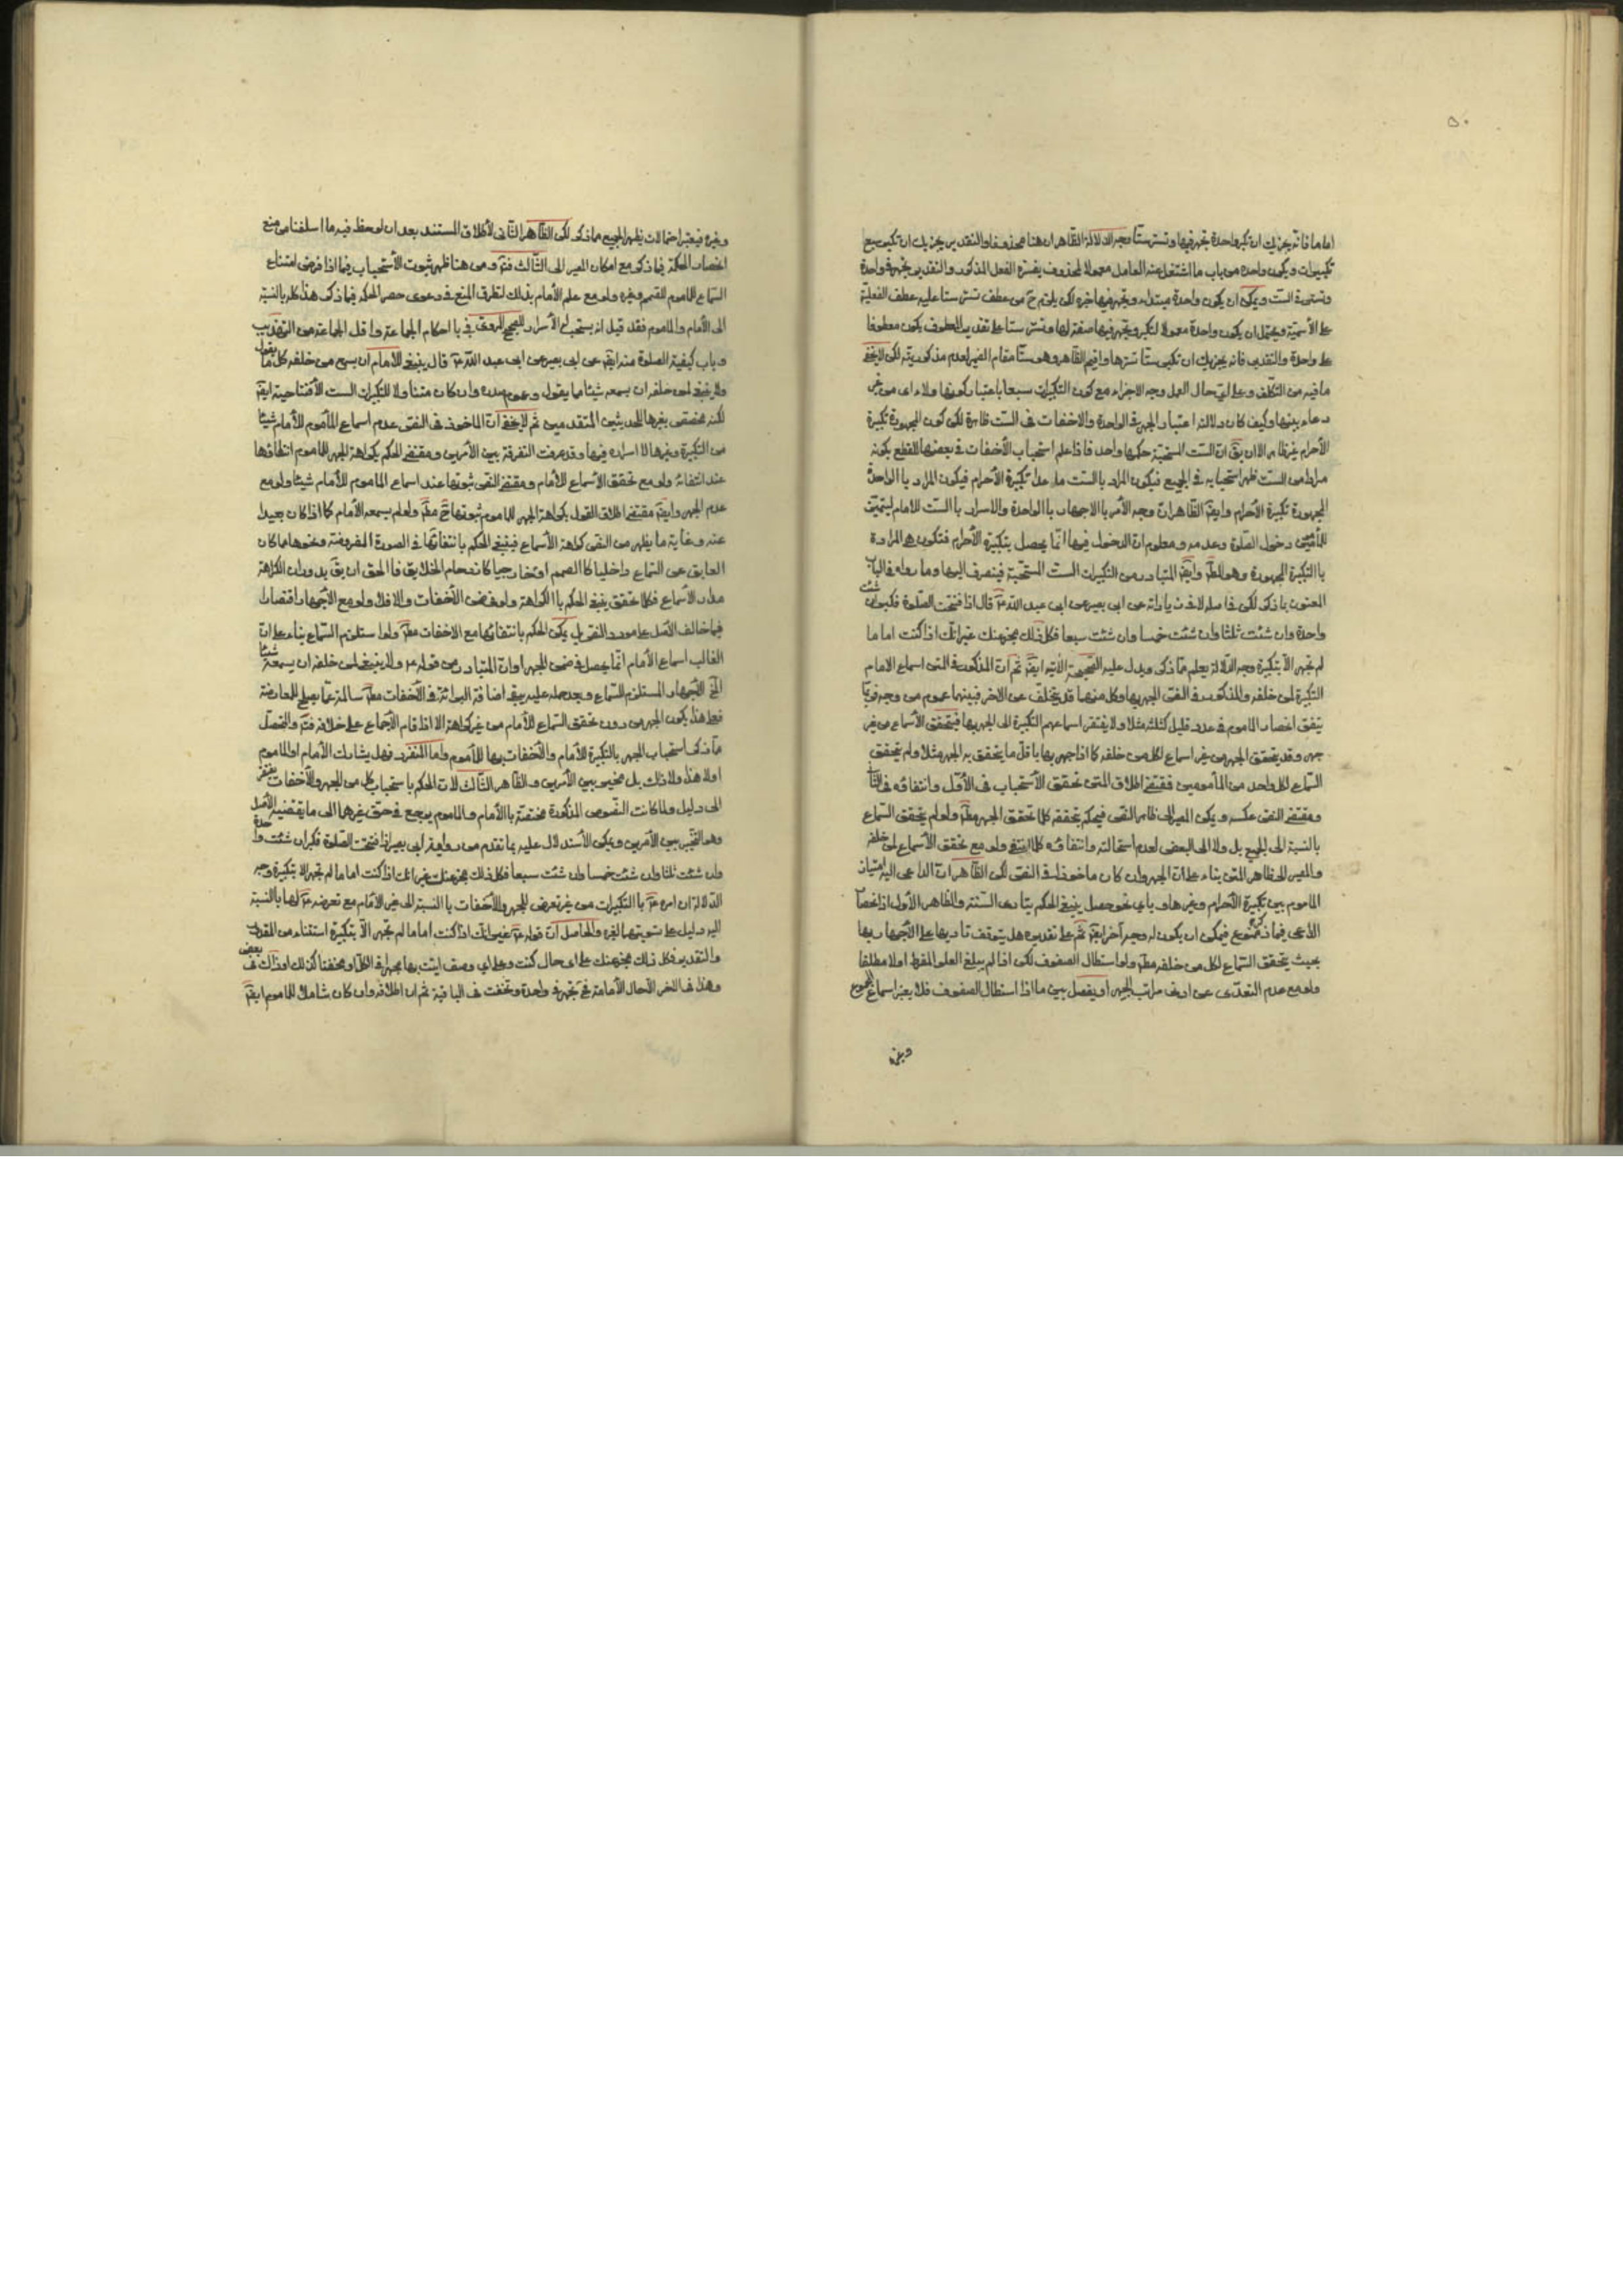 ٥٠
اماما فانه يجزيك ان تكبر واحدة تجهر فيها وتسر ستا وجه الدلالة الظاهر ان هنا محذوفا والتقدير يجزيك ان تكبر سبع
تكبيرات ويكون واحدة من باب ما اشتغل عنه العامل معمولا لمحذوف يفسره الفعل المذكور والتقدير تجهر في واحدة
وتسر في الست ويمكن ان يكون واحدة مبتداء وتجهر فيها خبره لكن يلزم ح من عطف تسر ستا عليه عطف الفعلية
على الأسمية ويحتمل ان يكون واحدة معمولا لتكبر وتجهر فيها صفة لها وتسر ستا على تقدير المعطوف يكون معطوفا
على واحدة والتقدير فانه يجزيك ان تكبر ستا تسرها واقيم الظاهر وهو ستا مقام الضمير لعدم مذكوريته لكن لا يخفى
ما فيه من التكلف وعلى اي حال وجه الاجزاء مع كون التكبيرات سبعا باعتبار كونها ولاء اي من غير
دعاء بينها وكيف كان دلالته اعتبار الجهر في الواحدة والاخفات في الست ظاهرة لكن كون المجهورة تكبيرة
الأحرام غير ظاهر الا ان يق ان الست المستحبة حكمها واحد فاذا علم استحباب الأخفات في بعضها للقطع بكونه
مرادا من الست ظهر استحبابه في الجميع فيكون المراد بالست ما عدا تكبيرة الأحرام فيكون المراد بالواحدة
المجهورة تكبيرة الأحرام وايضا الظاهر ان وجه الأمر بالاجهار بالواحدة والاسرار بالست للامام ليتميز
للمأمومين دخول الصلوة وعدمه ومعلوم ان الدخول فيها انما يحصل بتكبيرة الأحرام فتكون هي المرادة
بالتكبيرة المجهورة وهو المط وايضا المتبادر من التكبيرات الست المستحبة فينصرف اليها وما رواه في الباب
المعنون بما ذكر لكن في اسانيد الزيادات عن ابي بصير عن ابي عبد الله ع قال اذا افتتحت الصلوة فكبر ان شئت
واحدة وان شئت ثلثا وان شئت خمسا وان شئت سبعا فكل ذلك مجز عنك غير انك اذا كنت اماما
لم تجهر الا بتكبيرة وجه الدلالة يعلم مما ذكر ويدل عليه الصحيحة الآتية ايضا ثم ان المذكور في المتن اسماع الامام
التكبيرة لمن خلفه والمذكور في النص الجهر بها وكل منهما قد يتخلف عن الاخر فبينهما عموم من وجه فربما
يتفق انحصار المأموم في عدد قليل كثلثة مثلا ولا يفتقر اسماعهم التكبيرة الى الجهر بها فيتحقق الأسماع من غير
جهر وقد يتحقق الجهر من غير اسماع لكل من خلفه كما اذا جهر بها باقل ما يتحقق به الجهر مثلا ولم يتحقق
السماع لكل واحد من المأمومين فمقتضى اطلاق المتن تحقق الأستحباب في الأول وانتفائه في الثاني
ومقتضى النص عكسه ويمكن المصير الى ظاهر النص فيحكم بتحققه كلما تحقق الجهر مط ولو لم يتحقق السماع
بالنسبة الى الجميع بل ولا الى البعض لعدم استحالته وانتفائه كلما انتفى ولو مع تحقق الأسماع لمن خلفه
والمصير الى ظاهر المتن بناء على ان الجهر وان كان ماخوذا في النص لكن الظاهر ان الداعي اليه امتياز
المأموم بين تكبيرة الأحرام وغيرها وباي نحو حصل ينبغي الحكم بتأدي السنة والظاهر الأول اذ انحصار
الداعي فيما ذكر ممنوع فيمكن ان يكون له وجه آخر ايضا ثم على تقديره هل يتوقف تأديها على الأجهار بها
بحيث يتحقق السماع لكل من خلفه مط ولو استطال الصفوف لكن اذا لم يبلغ العلو المفرط او لا مطلقا
ولو مع عدم التعدي عن ادنى مراتب الجهر او يفصل بين ما اذا استطال الصفوف فلا يعتبر اسماع الجميع
وغيره
وغيره فيعتبر احتمالات يظهر الجميع مما ذكر لكن الظاهر الثاني لأطلاق المستند بعد ان لوحظ فيه ما اسلفنا من منع
انحصار الحكمة فيما ذكر مع امكان المصير الى الثالث فتم ومن هنا ظهر ثبوت الأستحباب فيما اذا فرض امتناع
السماع للمأموم للصمم وغيره ولو مع علم الأمام بذلك لتطرق المنع في دعوى حصر الحكمة فيما ذكر هذا كله بالنسبة
الى الأمام واما المأموم فقد قيل انه يستحب له الأسرار للصحيح المروي في باب احكام الجماعة واقل الجماعة من التهذيب
وباب كيفية الصلوة منه ايضا عن ابي بصير عن ابي عبد الله ع قال ينبغي للأمام ان يسمع من خلفه كل ما يقول
ولا ينبغي لمن خلفه ان يسمعه شيئا مما يقول وعمومه وان كان متناولا للتكبيرات الست الأفتتاحية ايضا
لكنه مخصص بغيرها للحديثين المتقدمين ثم لا يخفى ان الماخوذ في النص عدم اسماع المأموم للأمام شيئا
من التكبيرة وغيرها لا اسراره فيها وقد عرفت التفرقة بين الأمرين ومقتضى الحكم بكراهة الجهر للمأموم انتفائها
عند انتفائه ولو مع تحقق الأسماع للأمام ومقتضى النص ثبوتها عند اسماع المأموم للأمام شيئا ولو مع
عدم الجهر وايضا مقتضى اطلاق القول بكراهة الجهر للمأموم ثبوتها ح مط ولو لم يسمعه الأمام كما اذا كان بعيدا
عنه وغاية ما يظهر من النص كراهة الأسماع فينبغي الحكم بانتفائها في الصورة المفروضة ونحوها مما كان
العايق عن السماع داخليا كالصمم او خارجيا كازدحام الخلايق فالحق ان يق بدوران الكراهة
مدار الأسماع فكلما تحقق ينبغي الحكم بالكراهة ولو في ضمن الأخفات والا فلا ولو مع الأجهار اقتصارا
فيما خالف الأصل على مورد النص بل يمكن الحكم بانتفائها مع الاخفات مط ولو استلزم السماع بناء على ان
الغالب اسماع الأمام انما يحصل في ضمن الجهر وان المتبادر من قوله ع ولا ينبغي لمن خلفه ان يسمعه شيئا
الخ الأجهار المستلزم للسماع وبعد حمله عليه يبقى اصالة البرائة في الأخفات مط سالمة عما يصلح للمعارضة
فعلى هذا يكون الجهر من دون تحقق السماع للأمام من غير كراهة الا اذا قام الأجماع على خلافه فتم والمحصل
مما ذكر استحباب الجهر بالتكبيرة للأمام والأخفات بها للمأموم واما المنفرد فهل يشارك الأمام او المأموم
او لا هذا ولا ذاك بل مخير بين الأمرين والظاهر الثالث لان الحكم باستحباب كل من الجهر والأخفات يفتقر
الى دليل ولما كانت النصوص المذكورة مختصة بالأمام والمأموم يرجع في حق غيرهما الى ما يقتضيه الأصل
وهو التخيير بين الأمرين ويمكن الأستدلال عليه بما تقدم من رواية ابي بصير اذا افتتحت الصلوة فكبر ان شئت واحدة
وان شئت ثلثا وان شئت خمسا وان شئت سبعا فكل ذلك مجز عنك غير انك اذا كنت اماما لم تجهر الا بتكبيرة وجه
الدلالة ان امره ع بالتكبيرات من غير تعرض للجهر والأخفات بالنسبة الى غير الأمام مع تعرضه ع لها بالنسبة
اليه دليل على تسويتهما لغيره والحاصل ان قوله ع غير انك اذا كنت اماما لم تجهر الا بتكبيرة استثناء من المقدر
والتقدير فكل ذلك مجز عنك على اي حال كنت وعلى اي وصف اتيت بها مجهرا في الكل او مخفتا كذلك او ذاك في بعض
وهذا في الآخر الا حال الأمامة فتجهر في واحدة وتخفت في الباقية ثم ان اطلاقه وان كان شاملا للمأموم ايضا